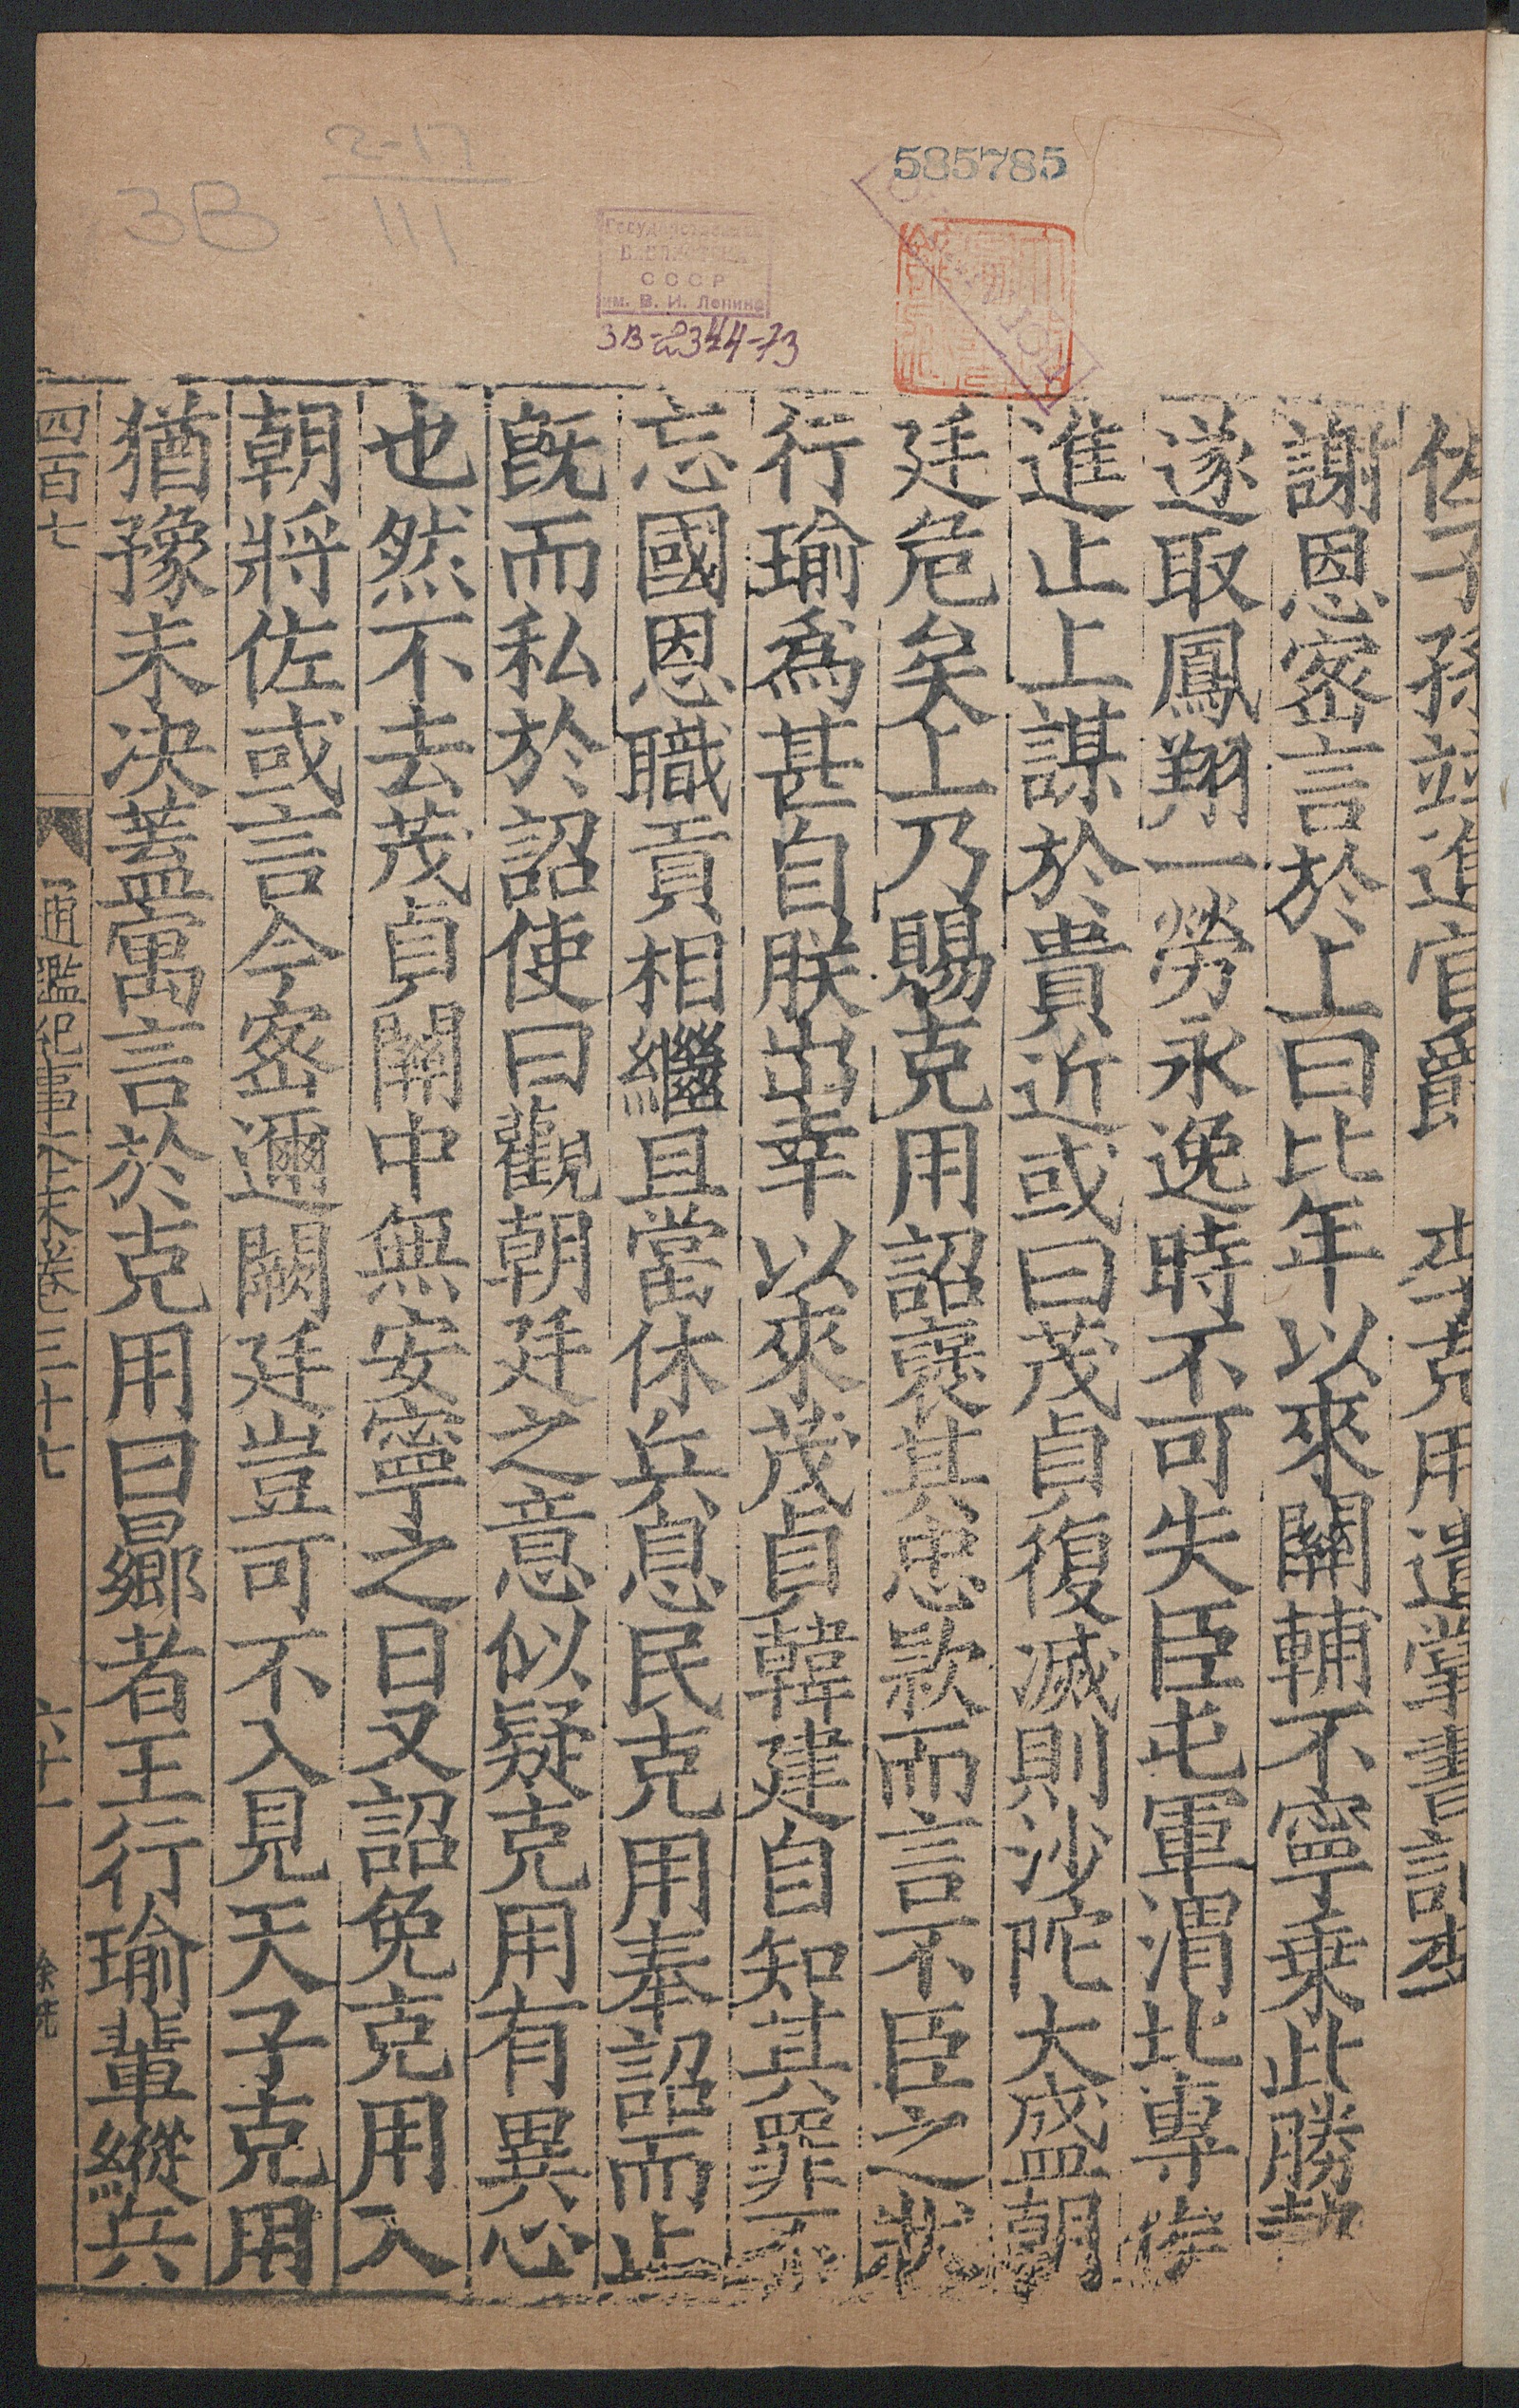 2-17
3В - 111
585785
Государственная
БИБЛИОТЕКА
СССР
им. В. И. Ленина
3В-2344-73
佐子孫並進官爵 李克用遣掌書記李
謝恩密言於上曰比年以來關輔不寧乗此勝勢
遂取鳳翔一勞永逸時不可失臣屯軍渭北專俟
進止上謀於貴近或曰茂貞復滅則沙陀大盛朝
廷危矣上乃賜克用詔襃其忠款而言不臣之狀
行瑜爲甚自朕出幸以來茂貞韓建自知其罪不
忘國恩職貢相繼且當休兵息民克用奉詔而止
旣而私於詔使曰觀朝廷之意似疑克用有異心
也然不去茂貞關中無安寧之日又詔免克用入
朝將佐或言今密邇闕廷豈可不入見天子克用
猶豫未决蓋寓言於克用曰曏者王行瑜輩縱兵
四百七
通鑑紀事本末卷三十七
六十一